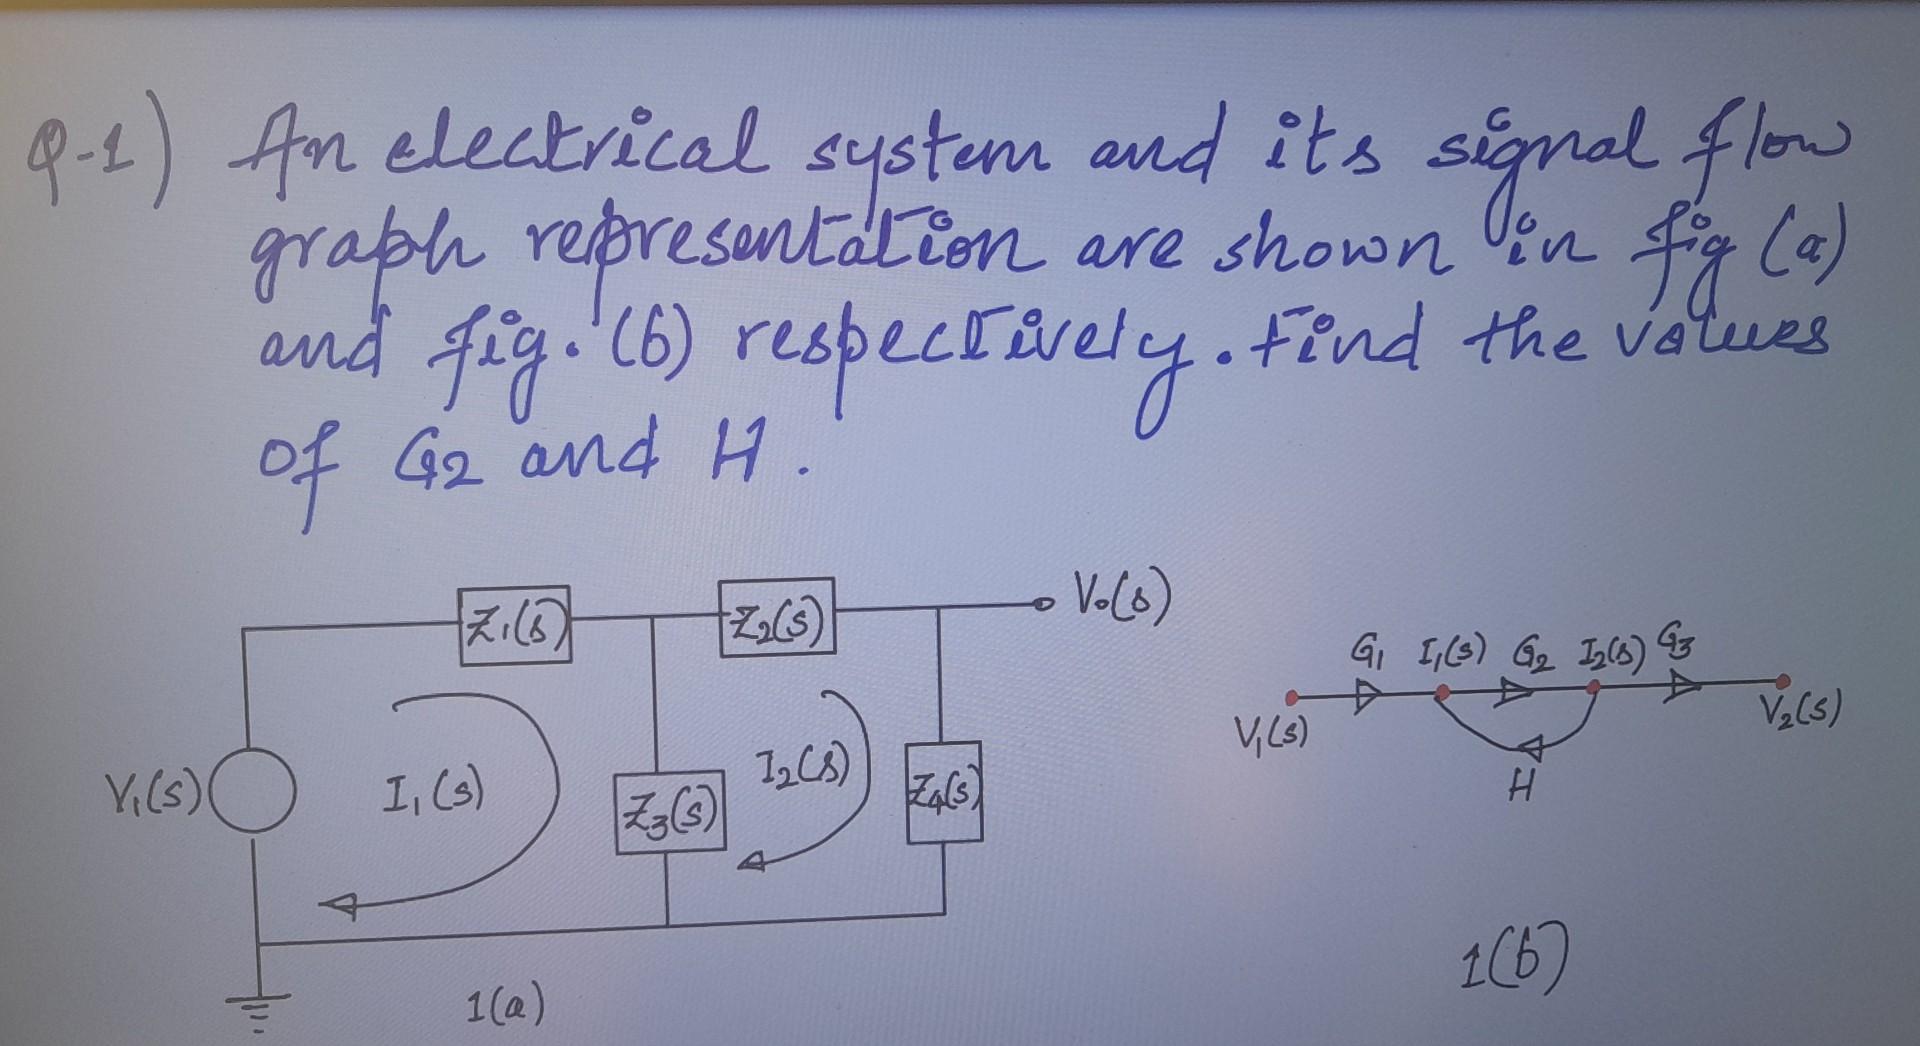 Q-1) An electrical system and its signal flow
graph representation are shown in fig (a)
and fig. (b) respectively. Find the values
of G2 and H.
Z1(s)
Z2(s)
Vo(s)
V1(s)
I1(s)
Z3(s)
I2(s)
Z4(s)
1(a)
G1 I1(s) G2 I2(s) G3
V1(s)
V2(s)
H
1(b)